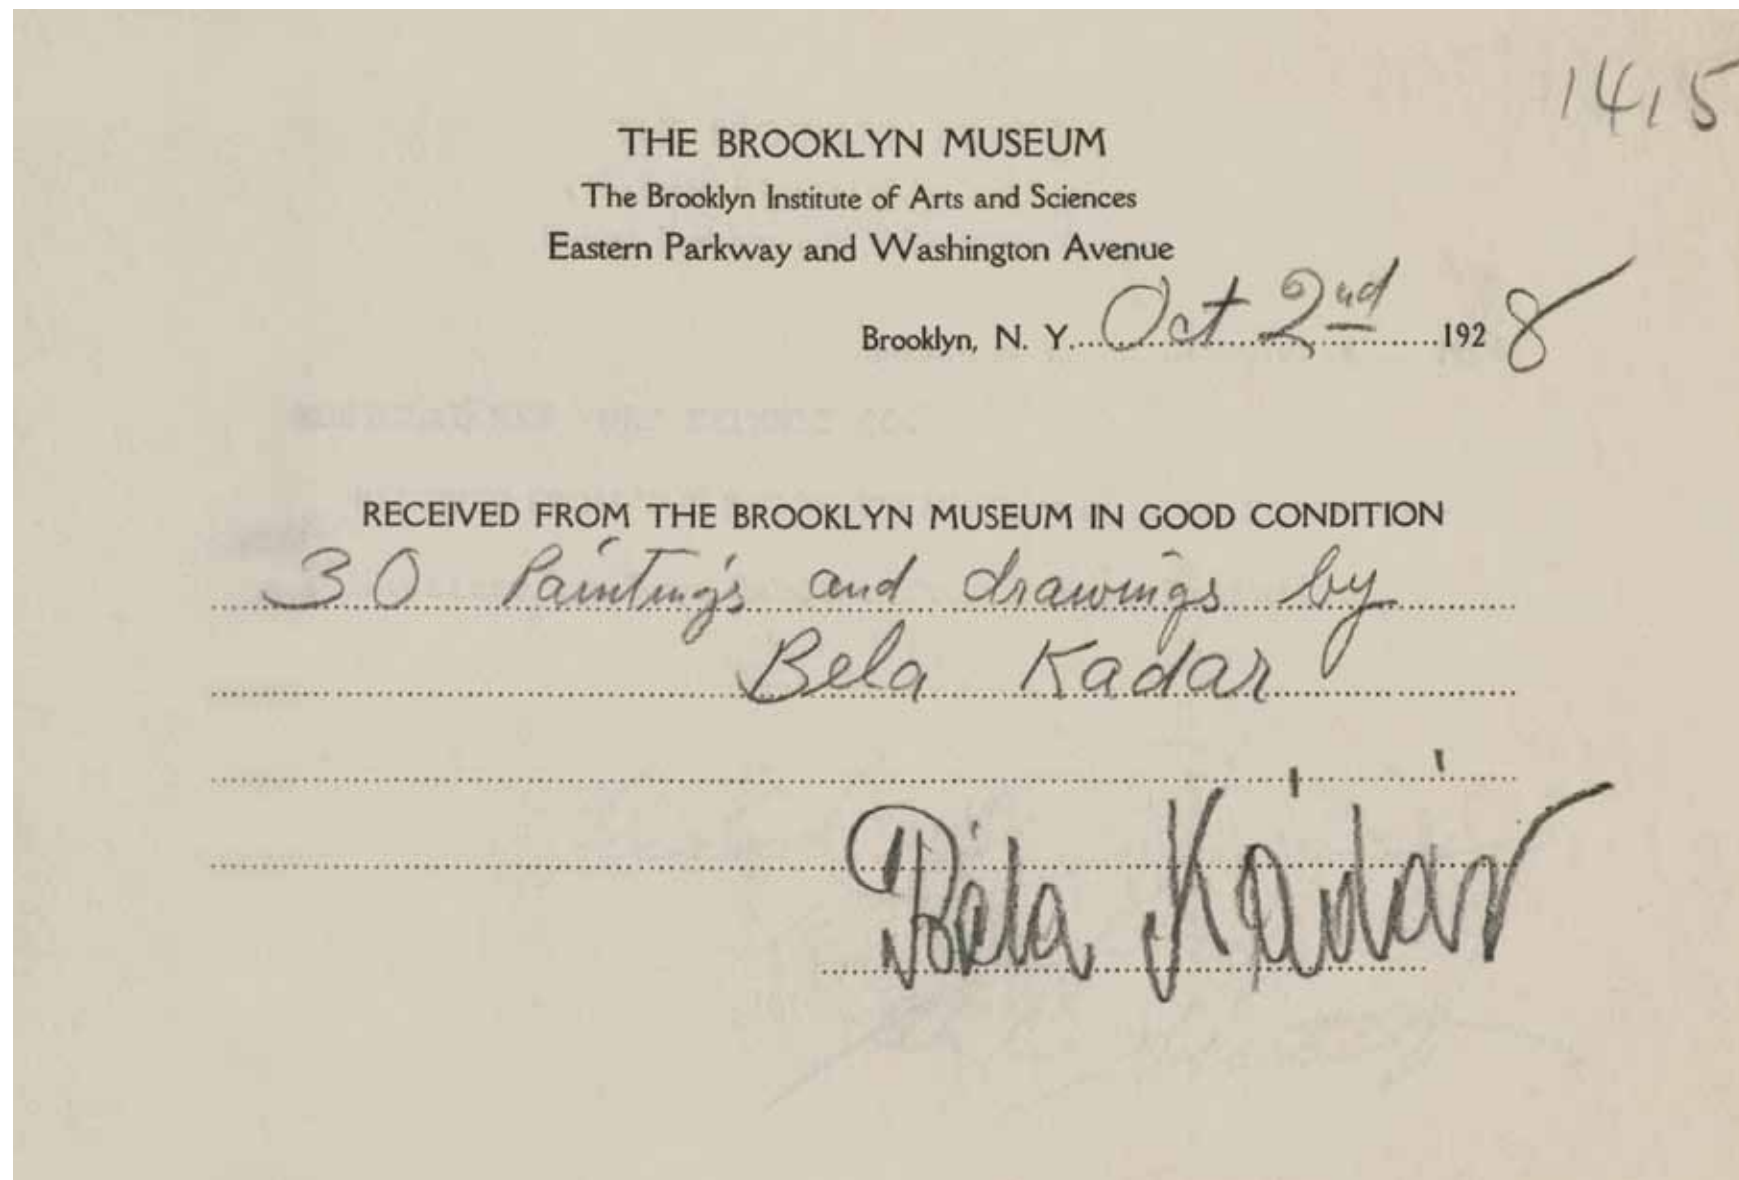 1415
THE BROOKLYN MUSEUM
The Brooklyn Institute of Arts and Sciences
Eastern Parkway and Washington Avenue
Brooklyn, N. Y. Oct 2nd 1928
RECEIVED FROM THE BROOKLYN MUSEUM IN GOOD CONDITION
30 Paintings and drawings by
Bela Kadar
Béla Kádár